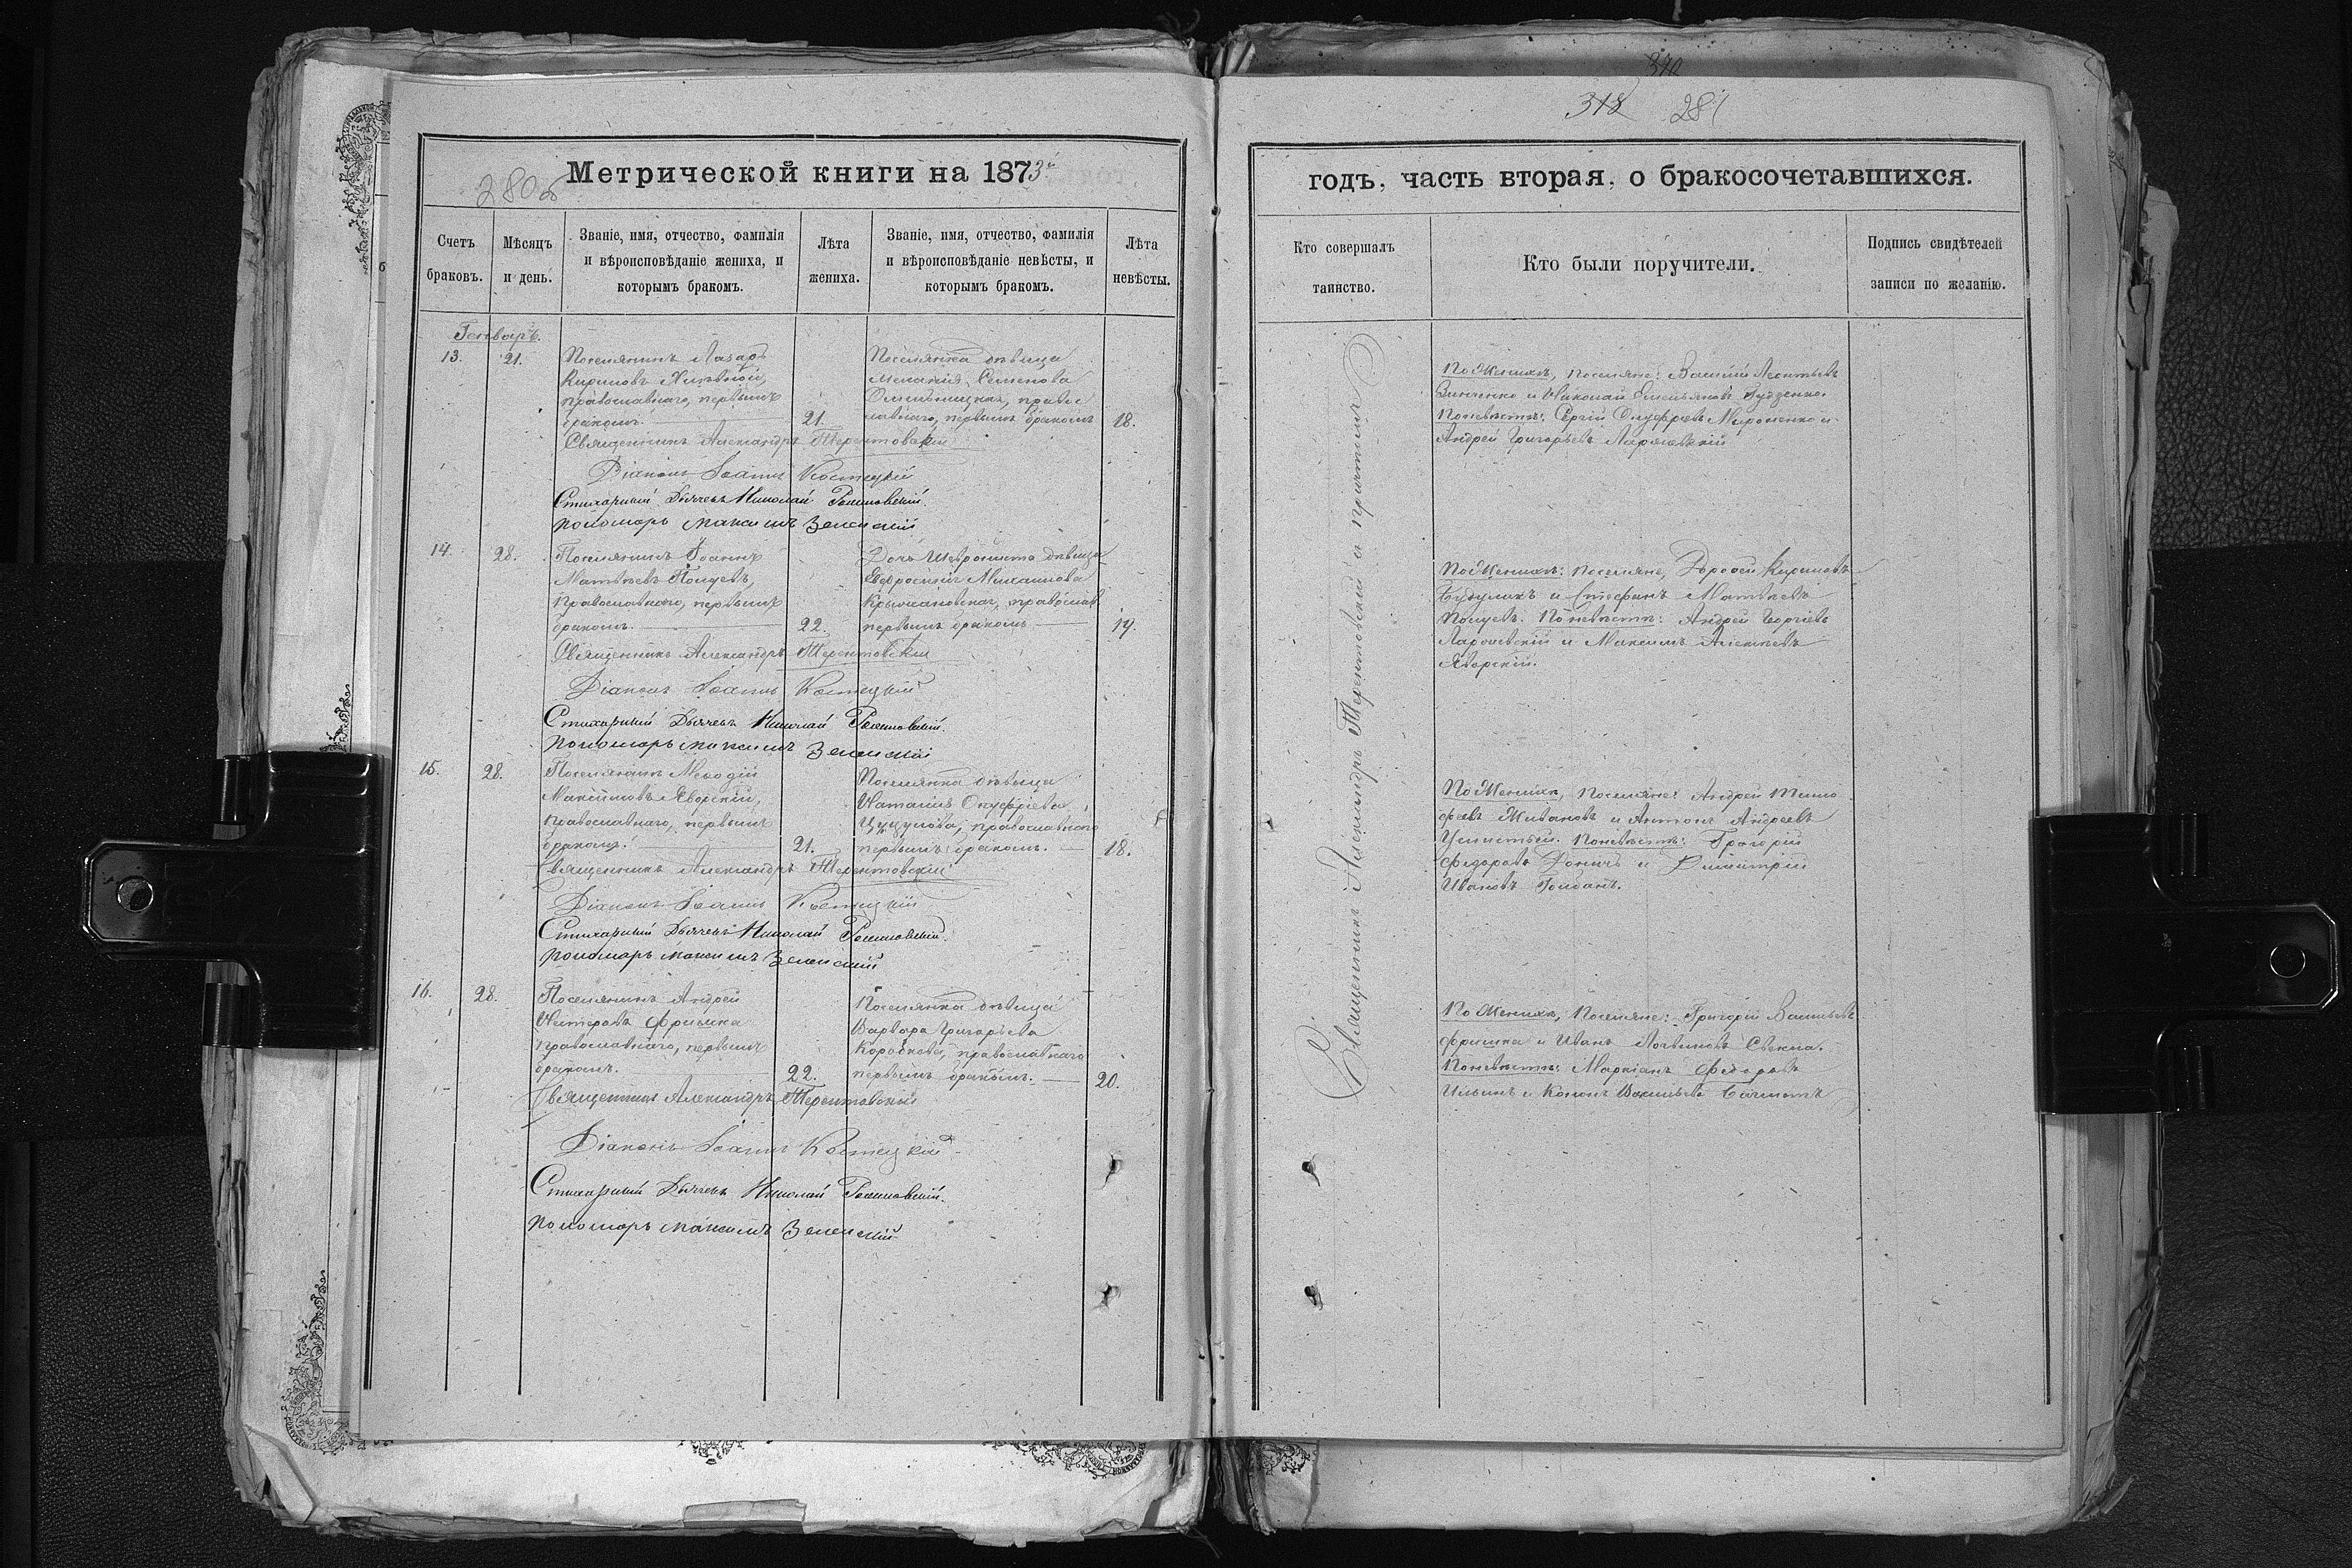 280об
Метрической книги на 1873й
Счетъ браковъ.
Мѣсяцъ и день.
Званіе, имя, отчество, фамилія и вѣроисповѣданіе жениха, и которымъ бракомъ.
Лѣта жениха.
Званіе, имя, отчество, фамилія и вѣроисповѣданіе невѣсты, и которымъ бракомъ.
Лѣта невѣсты.
Генварь.
13.
21.
Поселянинъ Лазарь
Кириловъ
православнаго, первымъ
бракомъ.
21.
Поселянка дѣвица
Меланія Семенова
правос
лавнаго, первымъ бракомъ
18.
Священникъ Александръ Терентовскій
Діаконъ Іоаннъ Костецкій
Стихарный Дьячекъ Николай
пономарь Максимъ Зеленскій
14.
28.
Поселянинъ Іоаннъ
Матѳеевъ
Православнаго, первымъ
бракомъ.
22.
Дочь дѣвица
Евфросинія Михаилова
Крыжановская, православ
первымъ бракомъ
19.
Священникъ Александръ Терентовскій
Діаконъ Іоаннъ Костецкій
Стихарный Дьячекъ Николай
пономарь Максимъ Зеленскій
15.
28.
Поселянинъ Меѳодій
Максимовъ Яворскій,
православнаго, первымъ
бракомъ.
21.
Поселянка дѣвица
Наталія Онуфріева
православнаго
первымъ бракомъ.
18.
Священникъ Александръ Терентовскій
Діаконъ Іоаннъ Костецкій
Стихарный Дьячекъ Николай
пономарь Максимъ Зеленскій
16.
28.
Поселянинъ Андрей
Нестеровъ Фришка
православнаго, первымъ
бракомъ.
22.
Поселянка дѣвица
Варвара Григорьева
православнаго
первымъ бракомъ.
20.
Священникъ Александръ Терентовскій
Діаконъ Іоаннъ Костецкій
Стихарный Дьячекъ Николай
пономарь Максимъ Зеленскій
340
318 281
годъ, часть вторая, о бракосочетавшихся.
Кто совершалъ таинство.
Кто были поручители.
Подпись свидѣтелей записи по желанію.
Священникъ Александръ Терентовскій съ причтомъ
По Женихѣ, поселяне: Василій Леонтьевъ
Зинченко и Николай Емельяновъ Гудзенко.
По невѣстѣ: Сергій Онуфріевъ Мироненко и
Андрей Григорьевъ
По Женихѣ: поселяне, Дороѳей Кириловъ
и Стефанъ Матѳеевъ
По невѣстѣ: Андрей Георгіевъ
и Максимъ Алексѣевъ
Яворскій.
По Женихѣ, поселяне: Андрей Тимо
фѣевъ Живановъ и Антонъ Андреевъ
По невѣстѣ: Григорій
Федоровъ Доничъ и Димитрій
Ивановъ
По Женихѣ, поселяне: Григорій Васильевъ
Фришка и Иванъ
По невѣстѣ: Маркіанъ Федоровъ
Ильинъ и Кононъ Васильевъ